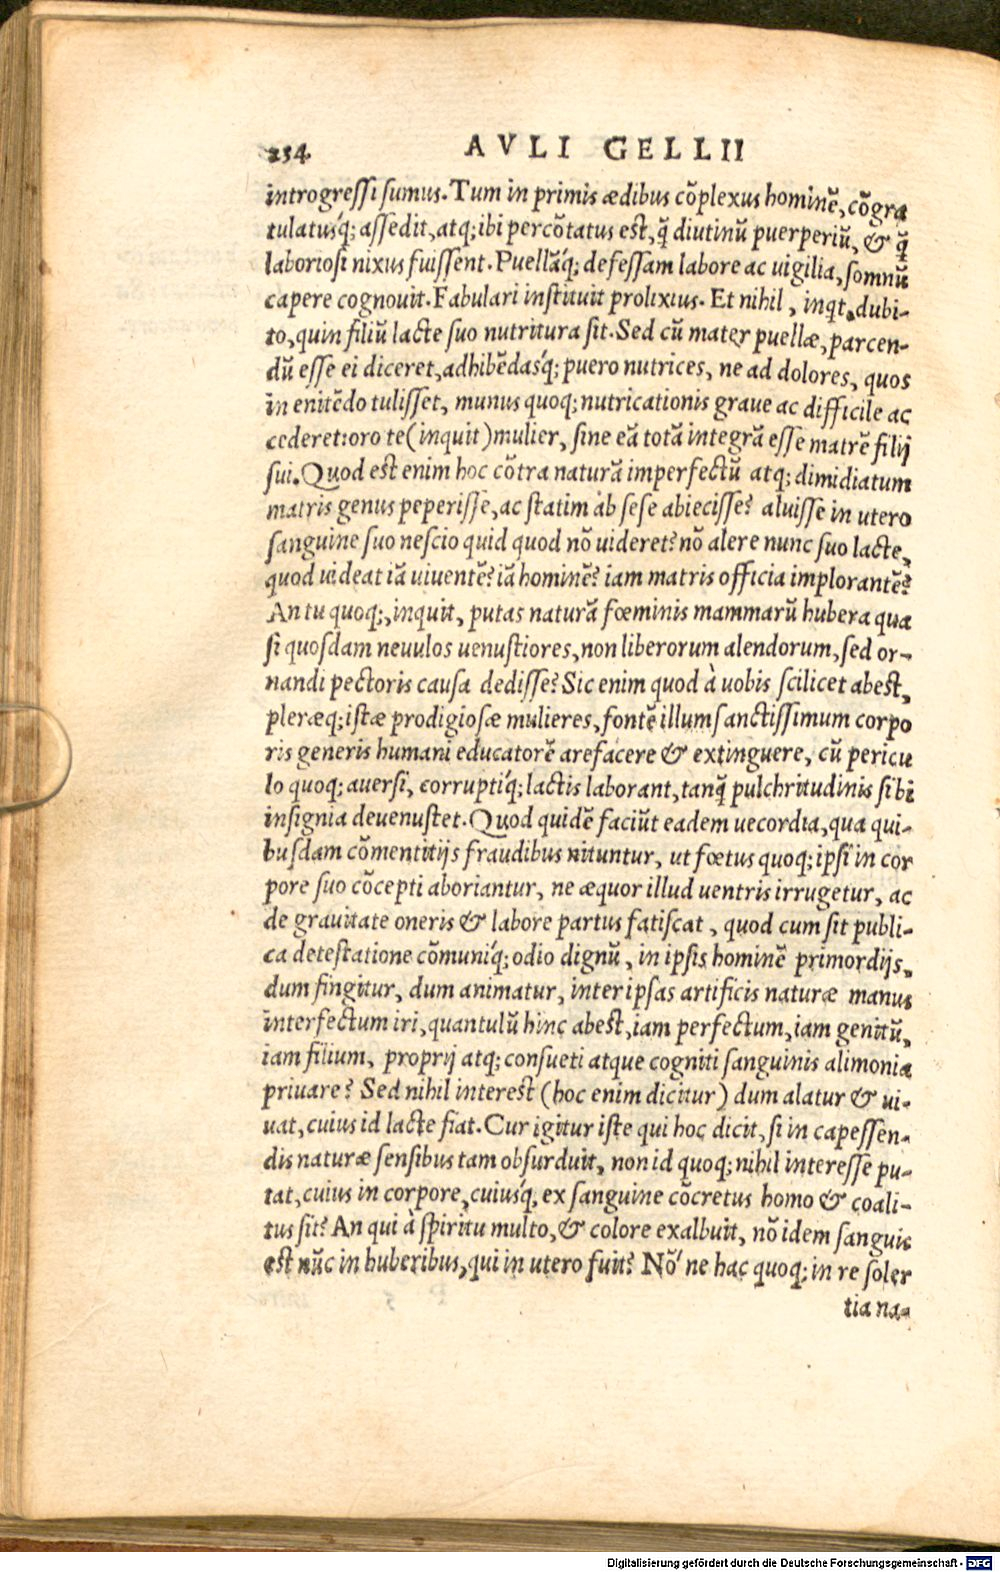 234 AVLI GELLII
introgreſſi ſumus. Tum in primis ædibus cõplexus hominẽ, cõgra
tulatusq́; aſſedit, atq; ibi percõtatus eſt, q̃ diutinũ puerperiũ, & q̃
laborioſi nixus fuiſſent. Puellãq́; defeſſam labore ac uigilia, ſomnũ
capere cognouit. Fabulari inſtituit prolixius. Et nihil, inqt, dubi-
to, quin filiũ lacte ſuo nutritura ſit. Sed cũ mater puellæ, parcen-
dũ eſſe ei diceret, adhibẽdasq́; puero nutrices, ne ad dolores, quos
in enitẽdo tuliſſet, munus quoq; nutricationis graue ac difficile ac
cederet: oro te (inquit) mulier, ſine eã totã integrã eſſe matrẽ filij
ſui. Quod eſt enim hoc cõtra naturã imperfectũ atq; dimidiatum
matris genus peperiſſe, ac ſtatim ab ſeſe abieciſſe? aluiſſe in utero
ſanguine ſuo neſcio quid quod nõ uideret? nõ alere nunc ſuo lacte,
quod uideat iã uiuentẽ? iã hominẽ? iam matris officia implorantẽ?
An tu quoq;, inquit, putas naturã fœminis mammarũ hubera qua
ſi quoſdam neuulos uenuſtiores, non liberorum alendorum, ſed or-
nandi pectoris cauſa dediſſe? Sic enim quod à uobis ſcilicet abeſt,
pleræq; iſtæ prodigioſæ mulieres, fontẽ illum ſanctiſſimum corpo
ris generis humani educatorẽ arefacere & extinguere, cũ pericu
lo quoq; auerſi, corruptiq́; lactis laborant, tanq̃ pulchritudinis ſibi
inſignia deuenuſtet. Quod quidẽ faciũt eadem uecordia, qua qui-
buſdam cõmentitijs fraudibus nituntur, ut fœtus quoq; ipſi in cor
pore ſuo cõcepti aboriantur, ne æquor illud uentris irrugetur, ac
de grauitate oneris & labore partus fatiſcat, quod cum ſit publi-
ca deteſtatione cõmuniq́; odio dignũ, in ipſis hominẽ primordijs,
dum fingitur, dum animatur, inter ipſas artificis naturæ manus
interfectum iri, quantulũ hinc abeſt, iam perfectum, iam genitũ,
iam filium, proprij atq; conſueti atque cogniti ſanguinis alimonia
priuare? Sed nihil intereſt (hoc enim dicitur) dum alatur & ui-
uat, cuius id lacte fiat. Cur igitur iſte qui hoc dicit, ſi in capeſſen-
dis naturæ ſenſibus tam obſurduit, non id quoq; nihil intereſſe pu-
tat, cuius in corpore, cuiusq́, ex ſanguine cõcretus homo & coali-
tus ſit? An qui à ſpiritu multo, & colore exalbuit, nõ idem ſanguis
eſt nũc in huberibus, qui in utero fuit? Nõ' ne hac quoq; in re ſoler
tia na-
Digitalisierung gefördert durch die Deutsche Forschungsgemeinschaft - DFG